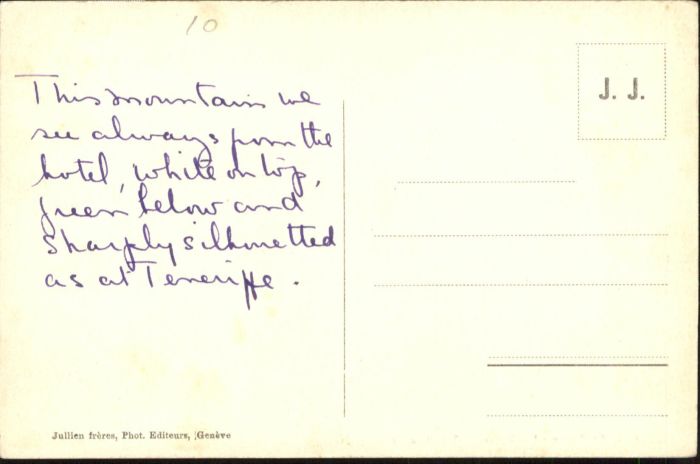 10
J. J.
This mountain we
see always from the
hotel, white on top,
green below and
sharply silhouetted
as at Teneriffe.
Jullien frères, Phot. Editeurs, Genève